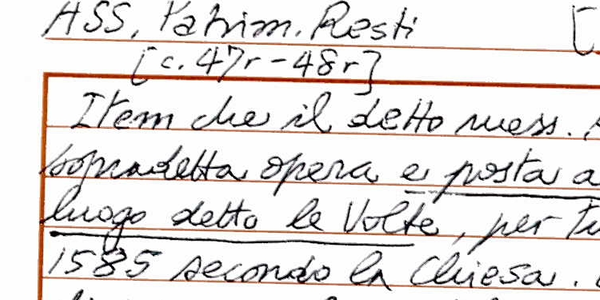 ASS, Patrim. Resti [
[c. 47r-48r]
Item che il detto mess.
sopradetta opera e posta a
luogo detto le Volte, per tu
1585 secondo la Chiesa.